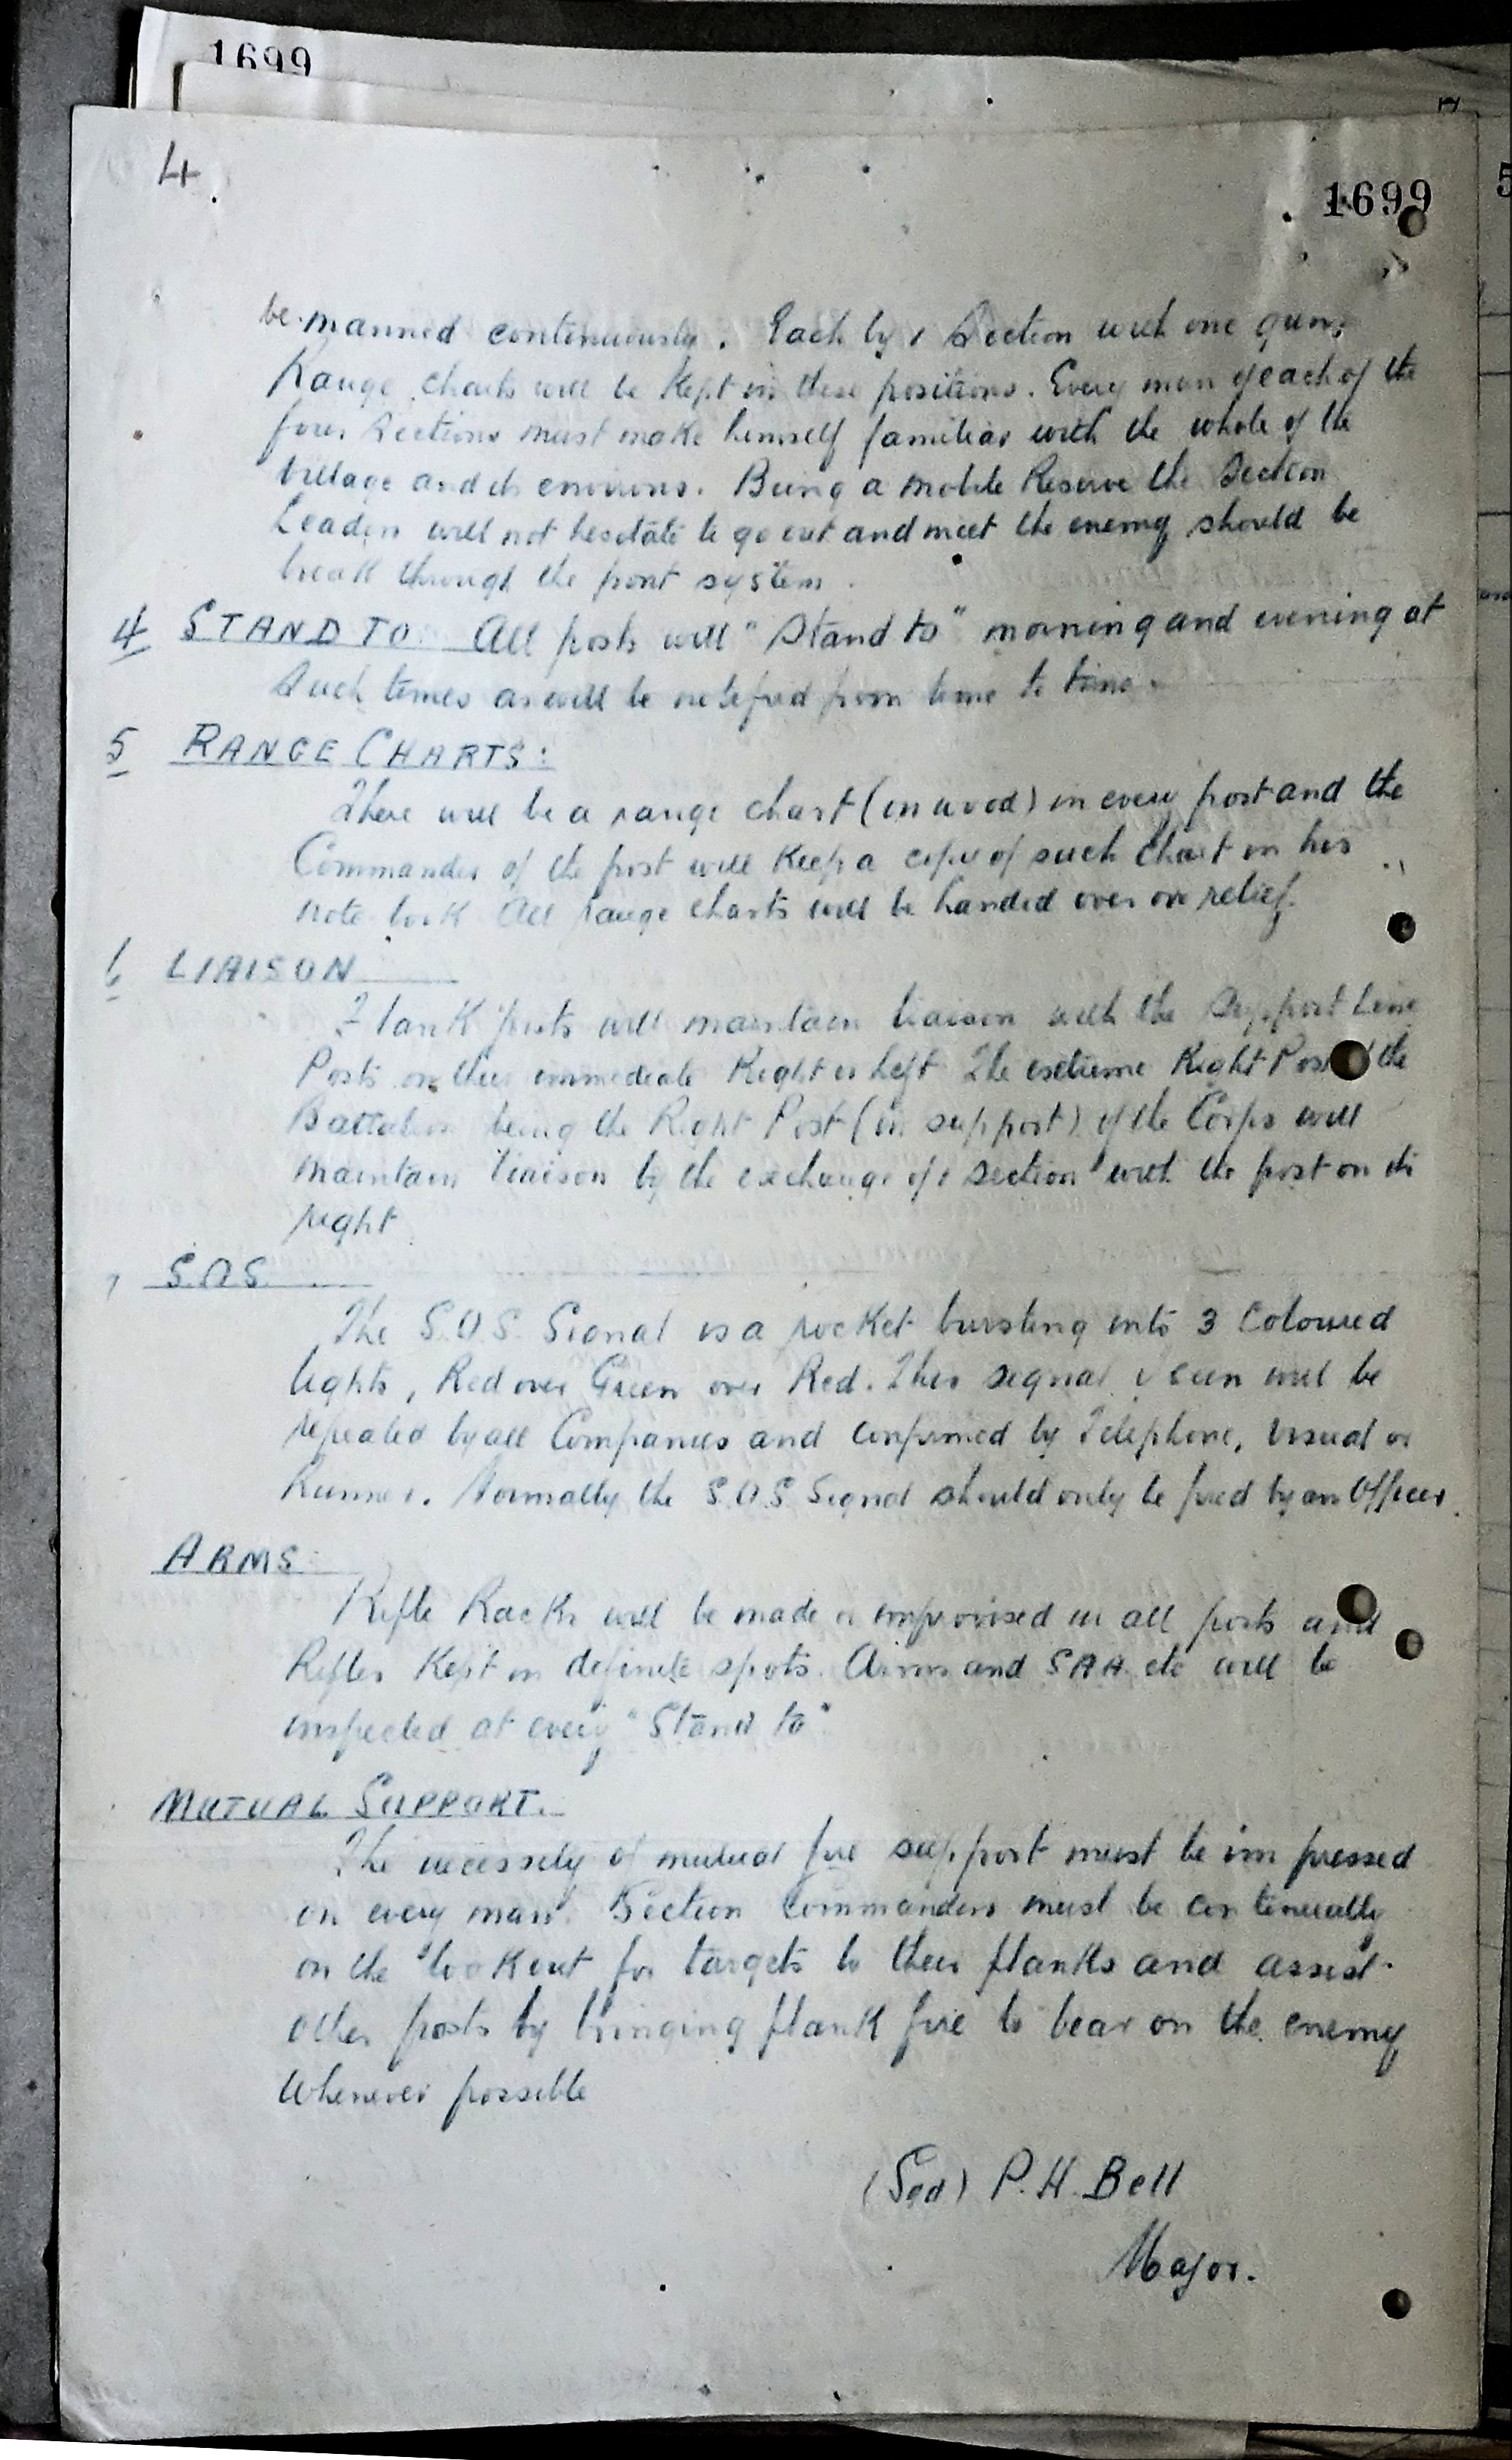 1699
4.
1699
be manned continuously. Each by 1 Section with one gun.
Range charts will be kept in these positions. Every man of each of the
four Sections must make himself familiar with the whole of the
Village and its environs. Being a mobile Reserve the Section
Leaders will not hesitate to go out and meet the enemy should he
break through the front system.
4 STAND TO: All posts will "Stand to" morning and evening at
Such times as will be notified from time to time.
5 RANGE CHARTS:
There will be a range chart (in wood) in every post and the
Commander of the post will keep a copy of such Chart in his
note book All range charts will be handed over on relief.
6 LIAISON
Flank posts will maintain liaison with the Support Line
Posts on their immediate Right or Left The extreme Right Post of the
Battalion being the Right Post (in support) of the Corps will
maintain liaison by the exchange of 1 section with the post on its
right
7 S.O.S.
The S.O.S. Signal is a rocket bursting into 3 Coloured
lights, Red over Green over Red. This signal if seen will be
repeated by all Companies and confirmed by Telephone, Visual or
Runner. Normally the S.O.S. Signal should only be fired by an Officer.
ARMS:
Rifle Racks will be made or improvised in all posts and
Rifles Kept in definite spots. Arms and SAA etc will be
inspected at every "Stand to".
MUTUAL SUPPORT.
The necessity of mutual fire support must be impressed
on every man. Section Commanders must be continually
on the lookout for targets to their flanks and assist
other posts by bringing flank fire to bear on the enemy
Whenever possible
(Sgd) P.H. Bell
Major.